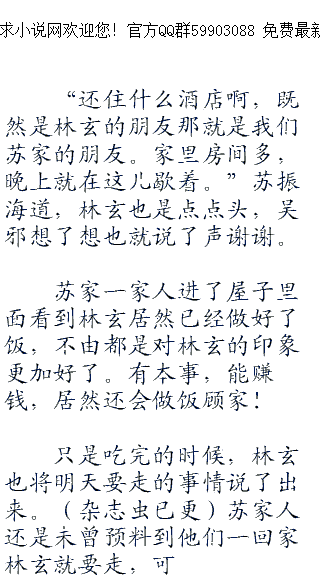 求小说网欢迎您！官方QQ群59903088 免费最新
“还住什么酒店啊，既
然是林玄的朋友那就是我们
苏家的朋友。家里房间多，
晚上就在这儿歇着。”苏振
海道，林玄也是点点头，吴
邪想了想也就说了声谢谢。
苏家一家人进了屋子里
面看到林玄居然已经做好了
饭，不由都是对林玄的印象
更加好了。有本事，能赚
钱，居然还会做饭顾家！
只是吃完的时候，林玄
也将明天要走的事情说了出
来。（杂志虫已更）苏家人
还是未曾预料到他们一回家
林玄就要走，可